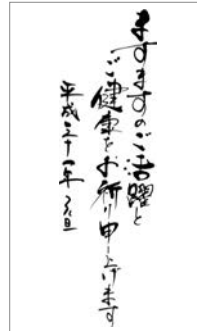 ますますのご活躍と
ご健康をお祈り申し上げます
平成三十一年 元旦